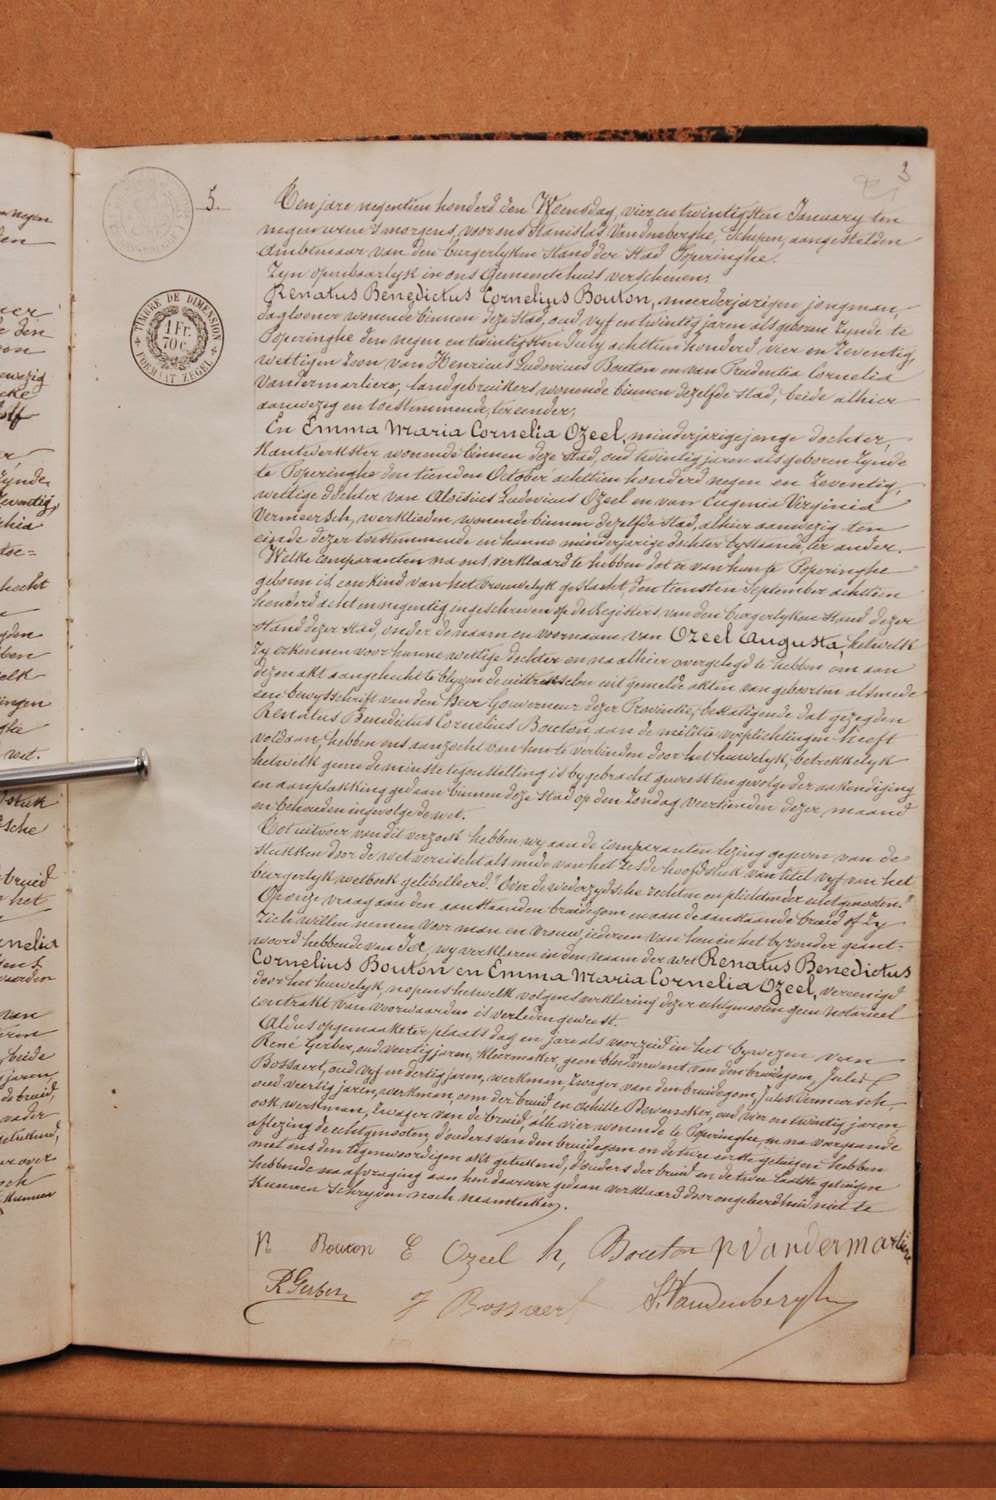 3
5.
TIMBRE DE DIMENSION
1 Fr.
70 c.
FORMAAT ZEGEL
Ten jare negentien honderd den Woensdag, vier en twintigsten January ten
negen uren 's morgens, voor ons Stanislas Vandenberghe, Schepen, aangestelden
ambtenaar van den burgerlyken stand der Stad Poperinghe.
Zyn openbaarlyk in ons Gemeentehuis verschenen:
Renatus Benedictus Cornelius Bouton, meerderjarigen jongman,
daglooner wonende binnen deze stad, oud vyf en twintig jaren als geboren zynde te
Poperinghe den negen en twintigsten July achttien honderd vier en zeventig,
wettigen zoon van Henricus Ludovicus Bouton en van Prudentia Cornelia
Vandermarliere, landgebruikers, wonende binnen dezelfde stad, beide alhier
aanwezig en toestemmende, ter eender;
En Emma Maria Cornelia Ozeel, minderjarige jonge dochter,
Kantwerkster wonende binnen deze stad, oud twintig jaren als geboren zynde
te Poperinghe den tienden October achttien honderd negen en zeventig,
wettige dochter van Aloisius Ludovicus Ozeel en van Eugenia Virginia
Vermeersch, werklieden wonende binnen dezelfde stad, alhier aanwezig ten
einde dezer toestemmende en hunne minderjarige dochter bystaande, ter ander.
Welke comparanten na ons verklaard te hebben dat er van hun te Poperinghe
geboren is een kind van het vrouwelyk geslacht, den tiensten September achttien
honderd acht en negentig ingeschreven op de Registers van den burgerlyken Stand dezer
Stand dezer stad, onder de naam en voornaam van Ozeel Augusta, hetwelk
zy erkennen voor hunne wettige dochter en na alhier overgelegd te hebben om aan
dezen akt aangehecht te blyven de uittreksels uit gemelde akten van geboorten alsmede
een bewysschrift van den Heer Gouverneur dezer Provintie, bestatigende dat gezegden
Renatus Benedictus Cornelius Bouton aan de militie verplichtingen heeft
voldaan, hebben ons aanzocht van hun te verbinden door het huwelyk, betrekkelyk
hetwelk geene de minste tegenstelling is bygebracht geweest ten gevolge der aankondiging
en aanplakking gedaan binnen deze stad op den Zondag veertienden dezer maand
en behouden ingevolge de wet.
Tot uitvoer van dit verzoek hebben wy aan de comparanten lezing gegeven van de
stukken door de wet vereischt als mede van het zesde hoofdstuk van titel vyf van het
burgerlyk wetboek getibelleerd: "Over de wederzydsche rechten en plichten der echtgenooten."
Op onze vraag aan den aanstaanden bruidegom en aan de aanstaande bruid of zy
zich willen nemen voor man en vrouw, iedereen van hun in het byzonder geant-
woord hebbende van Ja, wy verklaren in den naam der wet Renatus Benedictus
Cornelius Bouton en Emma Maria Cornelia Ozeel, vereenigd
door het huwelyk, nopens hetwelk volgens verklaring dezer echtgenooten geen notarieel
contrakt van voorwaarden is verleden geweest.
Aldus opgemaakt ter plaats dag en jaar als voorzeid in het bywezen van
René Gerber, oud veertig jaren, kleermaker, geen bloedverwant van den bruidegom, Jules
Bossaert, oud vyf en dertig jaren, werkman, zwager van den bruidegom, Jules Vermeersch,
oud veertig jaren, werkman, oom der bruid, en Achille oud vier en twintig jaren
ook werkman, zwager van de bruid, alle vier wonende te Poperinghe en na voorgaande
aflezing de echtgenooten, d'ouders van den bruidegom en de twee eerste getuigen hebben
met ons den tegenwoordigen akt geteekend, d'ouders der bruid en de twee laatste getuigen
hebbende na afvraging aan hen daarover gedaan verklaard door ongeleerdheid niet te
kunnen schryven noch naamteekenen.
R Bouton E Ozeel h, Bouton p Vandermarliere
R Gerber J Bossaert S. Vandenberghe